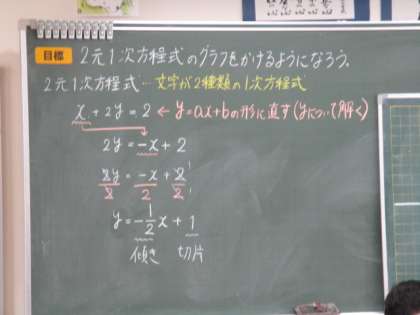 目標 2元1次方程式のグラフをかけるようになろう。
2元1次方程式…文字が2種類の1次方程式
x + 2y = 2 ← y=ax+bの形に直す(yについて解く)
2y = -x + 2
2y/2 = -x/2 + 2/2
y = -1/2 x + 1
傾き 切片